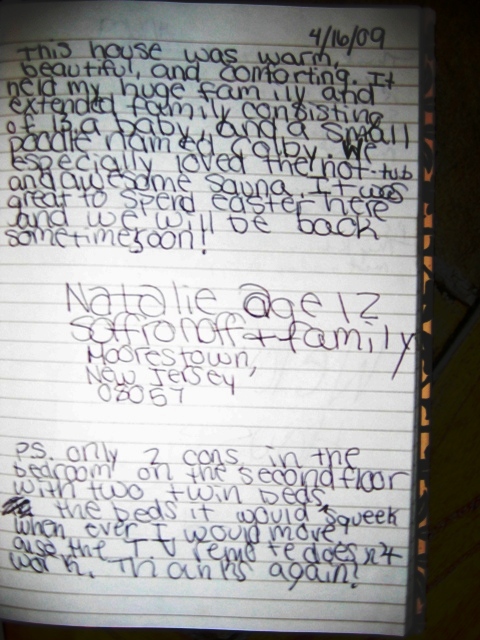 4/16/09
This house was warm,
beautiful, and comforting. It
held my huge family and
extended family consisting
of 13, a baby, and a small
poodle named Colby. We
especially loved the hot-tub
and awesome sauna. It was
great to spend easter here
and we will be back
sometime soon!
Natalie age 12
Soffronoff + family
Moorestown,
New Jersey
08057
P.S. only 2 cons. in the
bedroom on the second floor
with two twin beds
the beds it would squeek
when ever I would move
the T.V remote doesn't
work. Thanks again!